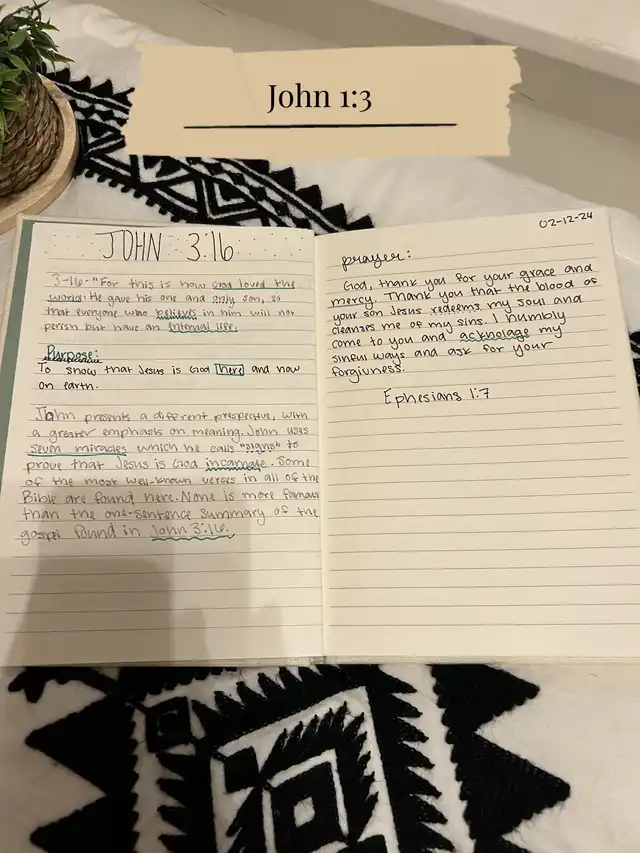 John 1:3
JOHN 3:16
3-16. "For this is how God loved the
world: He gave his one and only son, so
that everyone who believes in him will not
perish but have an eternal life.
Purpose:
To show that Jesus is God here and now
on earth.
John presents a different prespective, with
a greater emphasis on meaning. John uses
seven miracles which he calls "signs" to
prove that Jesus is God incarnate. Some
of the most well-known verses in all of the
Bible are found here. None is more famous
than the one-sentence summary of the
gospel found in John 3:16.
02-12-24
prayer:
God, thank you for your grace and
mercy. Thank you that the blood of
your son Jesus redeems my soul and
cleanzes me of my sins. I humbly
come to you and acknolage my
sinful ways and ask for your
forgivness.
Ephesians 1:7